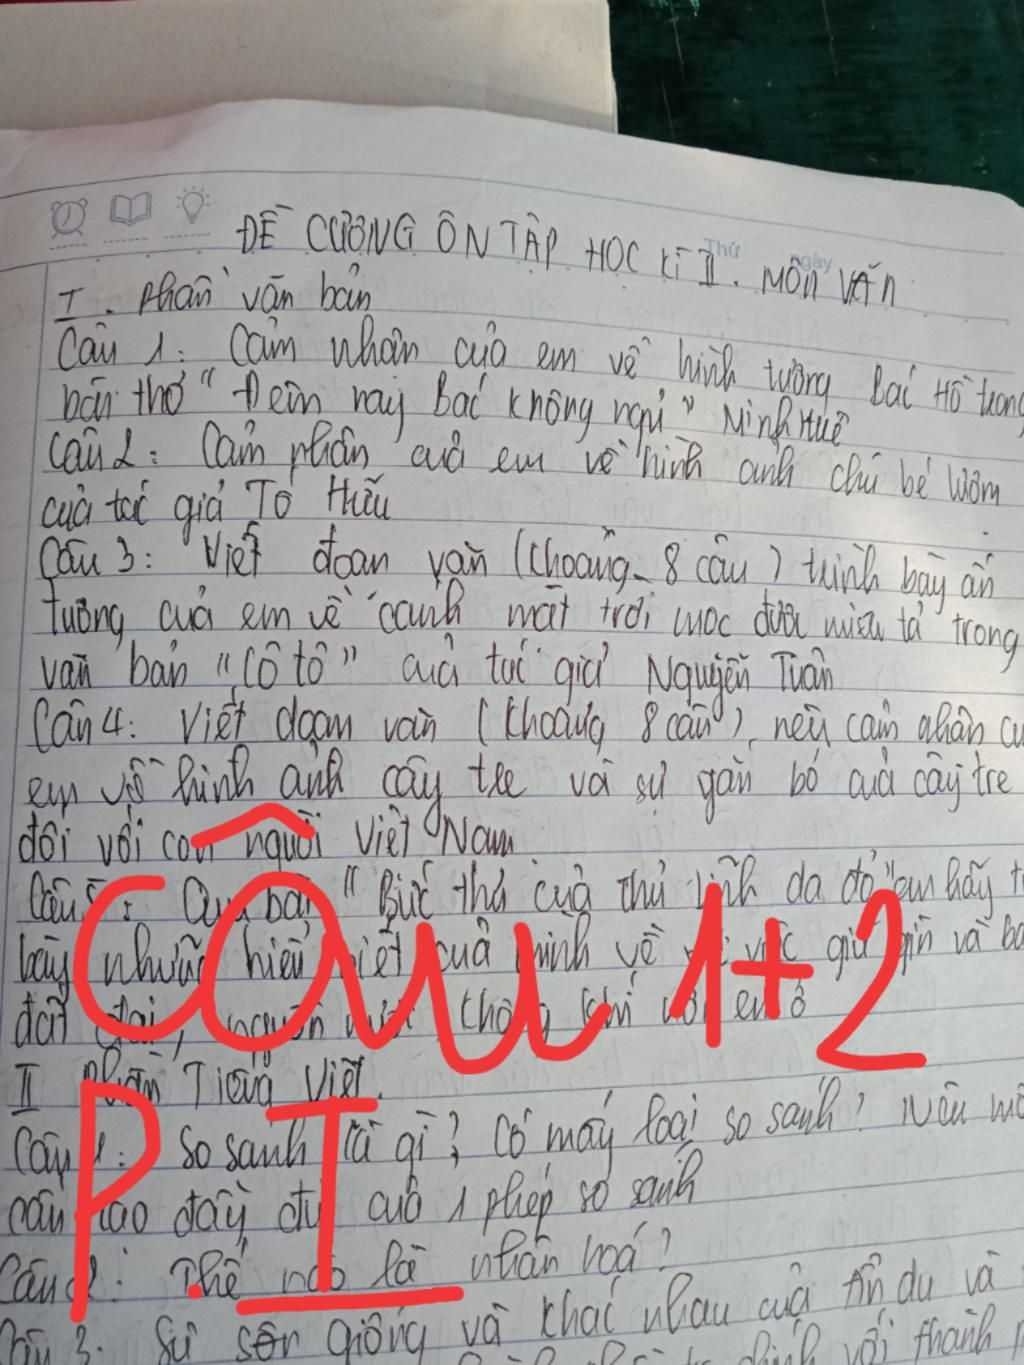 Thứ ngày
ĐỀ CƯƠNG ÔN TẬP HỌC KÌ II. MÔN VĂN
I. Phần văn bản
Câu 1: Cảm nhận của em về hình tượng Bác Hồ trong
bài thơ "Đêm nay Bác không ngủ" Minh Huệ
Câu 2: Cảm nhận của em về hình ảnh chú bé Lượm
của tác giả Tố Hữu
Câu 3: Viết đoạn văn (khoảng 8 câu) trình bày ấn
tượng của em về cảnh mặt trời mọc được miêu tả trong
văn bản "Cô tô" của tác giả Nguyễn Tuân
Câu 4: Viết đoạn văn (khoảng 8 câu), nêu cảm nhận
em về hình ảnh cây tre và sự gắn bó của cây tre
đối với con người Việt Nam
Câu 5: Qua bài "Bức thư của thủ lĩnh da đỏ" em hãy
bày những hiểu biết của mình về việc giữ gìn và
đất đai, nguồn nước, không khí nơi em ở
Câu 1+2
P.I
II Phần Tiếng Việt.
Câu 1: So sánh là gì? Có mấy loại so sánh? Nêu
cấu tạo đầy đủ của 1 phép so sánh
Câu 2: Thế nào là nhân hoá?
Câu 3: Sự giống và khác nhau của ẩn dụ và
với thành